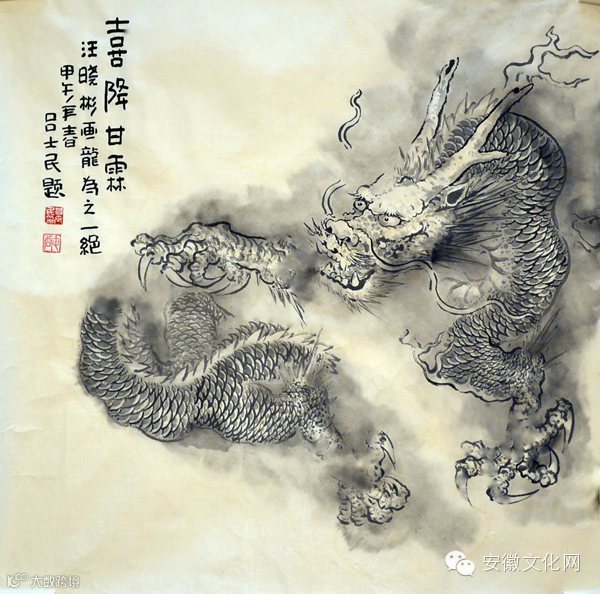 喜降甘霖
汪晓彬画龍为之一絕
甲午年春
吕士民题
安徽文化网
大数跨境